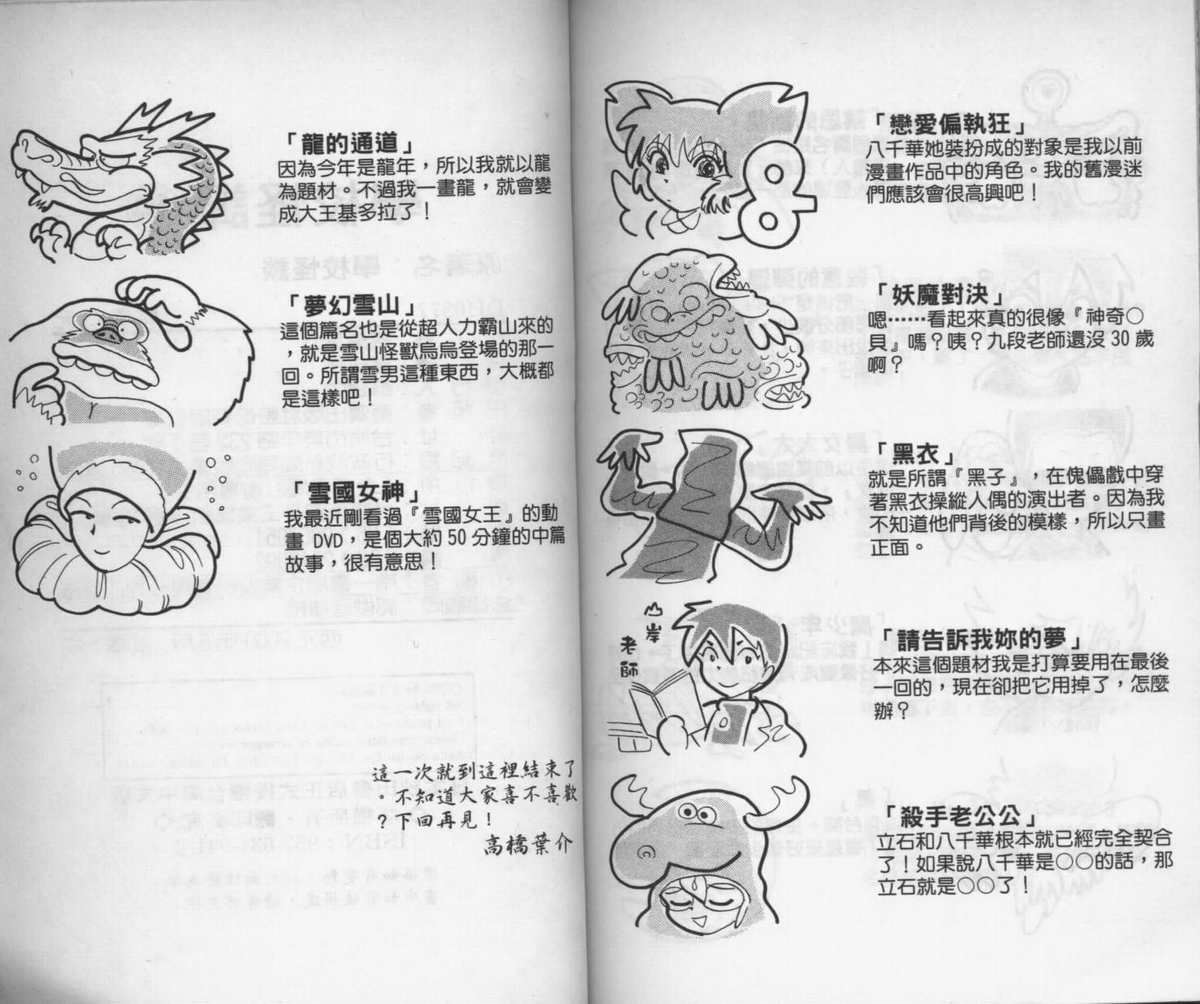 「戀愛偏執狂」
八千華她裝扮成的對象是我以前
漫畫作品中的角色。我的舊漫迷
們應該會很高興吧！
「妖魔對決」
嗯……看起來真的很像『神奇○
貝』嗎？咦？九段老師還沒 30 歲
啊？
「黑衣」
就是所謂『黑子』，在傀儡戲中穿
著黑衣操縱人偶的演出者。因為我
不知道他們背後的模樣，所以只畫
正面。
山岸
老師
「請告訴我妳的夢」
本來這個題材我是打算要用在最後
一回的，現在卻把它用掉了，怎麼
辦？
「殺手老公公」
立石和八千華根本就已經完全契合
了！如果說八千華是○○的話，那
立石就是○○了！
「龍的通道」
因為今年是龍年，所以我就以龍
為題材。不過我一畫龍，就會變
成大王基多拉了！
「夢幻雪山」
這個篇名也是從超人力霸山來的
，就是雪山怪獸烏烏登場的那一
回。所謂雪男這種東西，大概都
是這樣吧！
「雪國女神」
我最近剛看過『雪國女王』的動
畫 DVD，是個大約 50 分鐘的中篇
故事，很有意思！
這一次就到這裡結束了
。不知道大家喜不喜歡
？下回再見！
高橋葉介